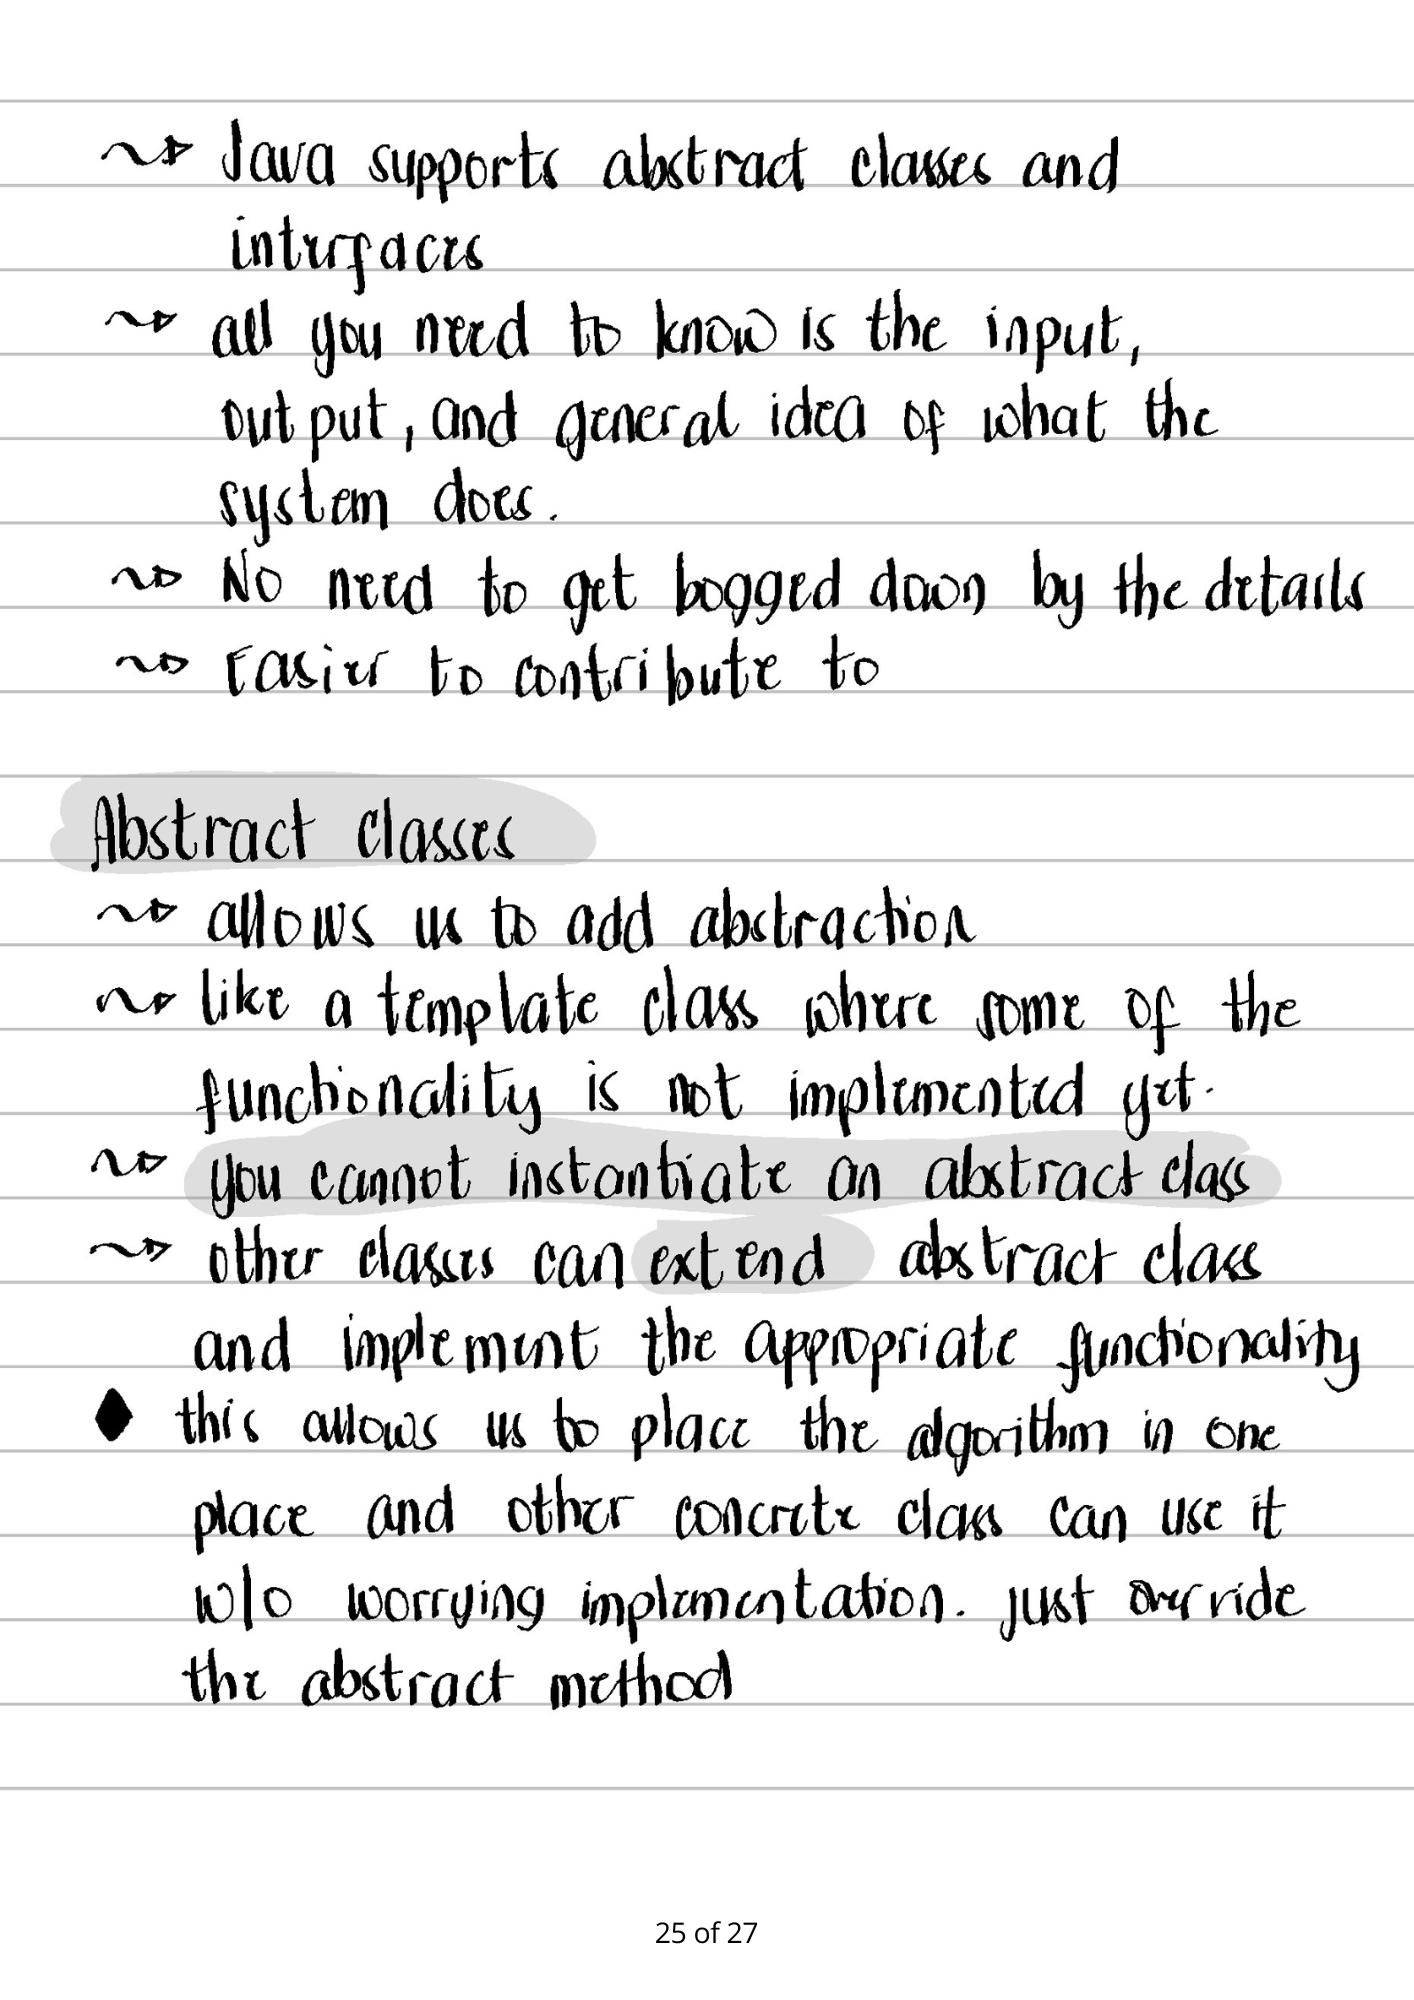 ~> Java supports abstract classes and
interfaces
~> all you need to know is the input,
output, and general idea of what the
system does.
~> No need to get bogged down by the details
~> Easier to contribute to
Abstract classes
~> allows us to add abstraction
~> like a template class where some of the
functionality is not implemented yet.
~> you cannot instantiate an abstract class
~> other classes can extend abstract class
and implement the appropriate functionality
♦ this allows us to place the algorithm in one
place and other concrete class can use it
w/o worrying implementation. just override
the abstract method
25 of 27